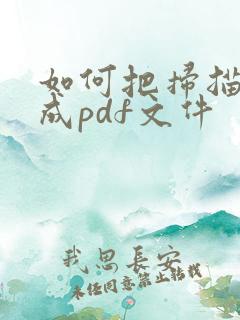 如何把扫描
成pdf文件
我思长安
未经同意禁止转载